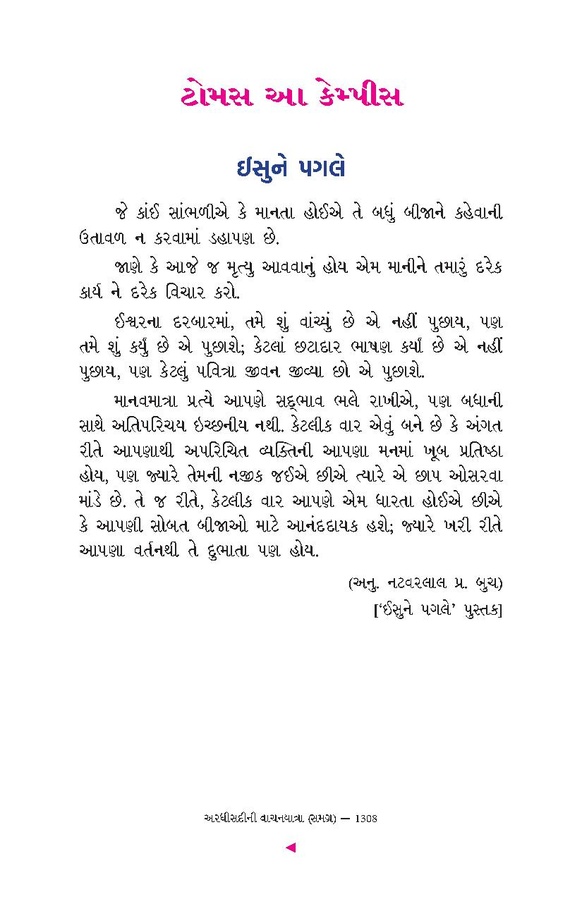 ટોમસ આ કેમ્પીસ
ઈસુને પગલે
જે કાંઈ સાંભળીએ કે માનતા હોઈએ તે બધું બીજાને કહેવાની
ઉતાવળ ન કરવામાં ડહાપણ છે.
જાણે કે આજે જ મૃત્યુ આવવાનું હોય એમ માનીને તમારું દરેક
કાર્ય ને દરેક વિચાર કરો.
ઈશ્વરના દરબારમાં, તમે શું વાંચ્યું છે એ નહીં પુછાય, પણ
તમે શું કર્યું છે એ પુછાશે; કેટલાં છટાદાર ભાષણ કર્યાં છે એ નહીં
પુછાય, પણ કેટલું પવિત્રા જીવન જીવ્યા છો એ પુછાશે.
માનવમાત્રા પ્રત્યે આપણે સદ્ભાવ ભલે રાખીએ, પણ બધાની
સાથે અતિપરિચય ઇચ્છનીય નથી. કેટલીક વાર એવું બને છે કે અંગત
રીતે આપણાથી અપરિચિત વ્યક્તિની આપણા મનમાં ખૂબ પ્રતિષ્ઠા
હોય, પણ જ્યારે તેમની નજીક જઈએ છીએ ત્યારે એ છાપ ઓસરવા
માંડે છે. તે જ રીતે, કેટલીક વાર આપણે એમ ધારતા હોઈએ છીએ
કે આપણી સોબત બીજાઓ માટે આનંદદાયક હશે; જ્યારે ખરી રીતે
આપણા વર્તનથી તે દુભાતા પણ હોય.
(અનુ. નટવરલાલ પ્ર. બુચ)
[‘ઈસુને પગલે’ પુસ્તક]
અરધીસદીની વાચનયાત્રા (સમગ્ર) — 1308